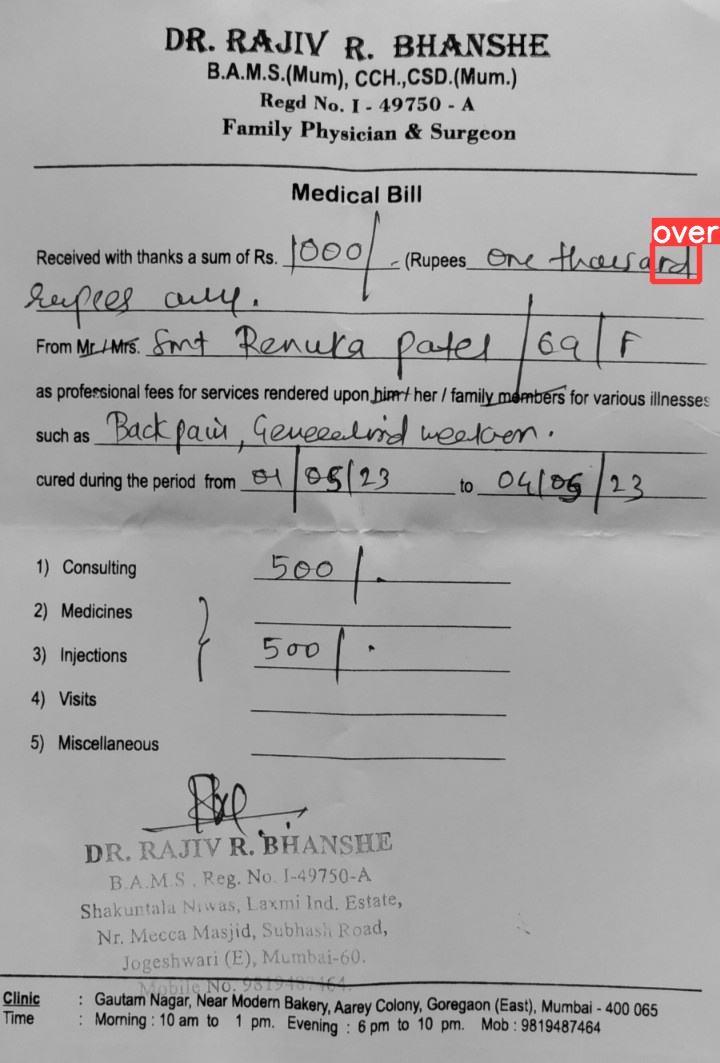 DR. RAJIV R. BHANSHE
B.A.M.S.(Mum), CCH.,CSD.(Mum.)
Regd No. I - 49750 - A
Family Physician & Surgeon
Medical Bill
over
Received with thanks a sum of Rs. 1000/- (Rupees One thousand
Rupees only.
From Mr./Mrs. Smt Renuka Patel / 69 / F
as professional fees for services rendered upon him / her / family members for various illnesses
such as Back pain,
cured during the period from 01/05/23 to 04/05/23
1) Consulting 500/-
2) Medicines
3) Injections 500/-
4) Visits
5) Miscellaneous
DR. RAJIV R. BHANSHE
B.A.M.S , Reg. No. I-49750-A
Shakuntala Niwas, Laxmi Ind. Estate,
Nr. Mecca Masjid, Subhash Road,
Jogeshwari (E), Mumbai-60.
Mobile No. 9819487464.
Clinic : Gautam Nagar, Near Modern Bakery, Aarey Colony, Goregaon (East), Mumbai - 400 065
Time : Morning : 10 am to 1 pm. Evening : 6 pm to 10 pm. Mob : 9819487464